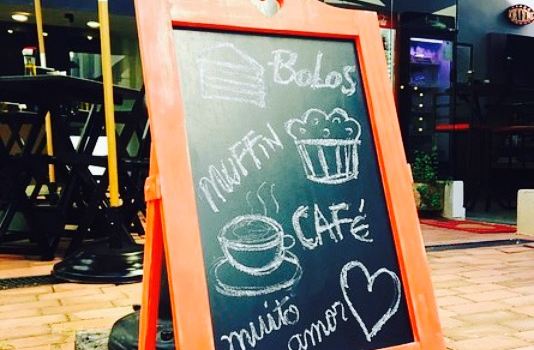 Bolos
MUFFIN
CAFÉ
muito
amor